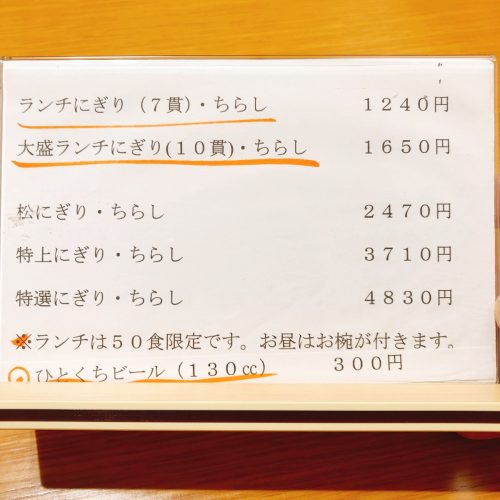 ランチにぎり（７貫）・ちらし　１２４０円
大盛ランチにぎり(１０貫)・ちらし　１６５０円
松にぎり・ちらし　２４７０円
特上にぎり・ちらし　３７１０円
特選にぎり・ちらし　４８３０円
※ランチは５０食限定です。お昼はお椀が付きます。
ひとくちビール（１３０㏄）　３００円